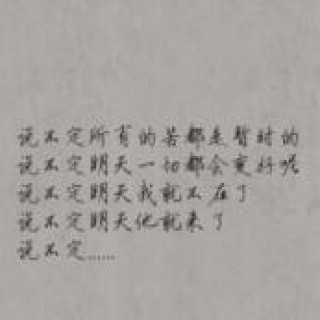 说不定所有的苦都是暂时的
说不定明天一切都会变好呢
说不定明天我就不在了
说不定明天他就来了
说不定……